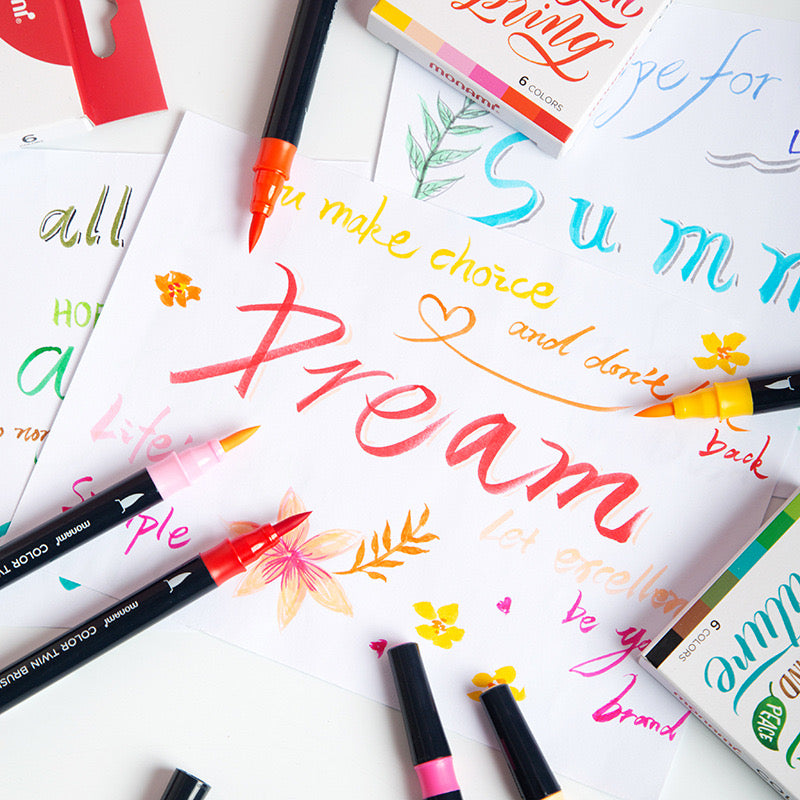 monami
6
pring
monami
6 COLORS
pe for
Summ
all
HOP
a
u make choice
and don't
back
Dream
Life
ple
Let excellen
be yo
brand
monami COLOR TWIN
monami COLOR TWIN BRUSH
6 COLORS
ature
AND
PEACE